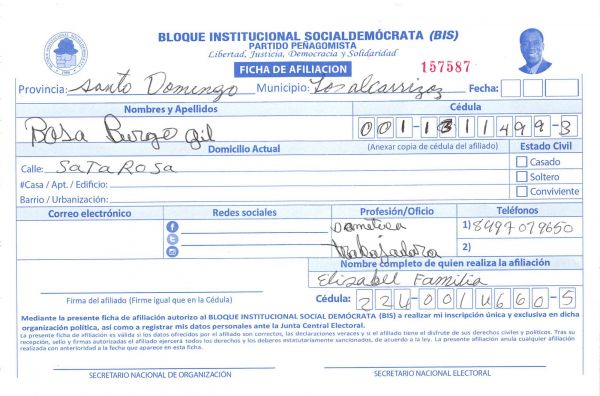 BLOQUE INSTITUCIONAL SOCIALDEMÓCRATA (BIS)
PARTIDO PEÑAGOMISTA
Libertad, Justicia, Democracia y Solidaridad
FICHA DE AFILIACION 157587
Provincia: Santo Domingo Municipio: Losalcarrizoz Fecha:
Nombres y Apellidos Cédula
Rosa Burgo gil 001-1311499-3
Domicilio Actual (Anexar copia de cédula del afiliado) Estado Civil
Calle: SATA ROSA Casado
#Casa / Apt. / Edificio: Soltero
Barrio / Urbanización: Conviviente
Correo electrónico Redes sociales Profesión/Oficio Teléfonos
1) 8497079650
trabajadora 2)
Nombre completo de quien realiza la afiliación
Elizabel Familia
Firma del afiliado (Firme igual que en la Cédula) Cédula: 226-0014660-5
Mediante la presente ficha de afiliación autorizo al BLOQUE INSTITUCIONAL SOCIAL DEMÓCRATA (BIS) a realizar mi inscripción única y exclusiva en dicha
organización política, así como a registrar mis datos personales ante la Junta Central Electoral.
La presente ficha de afiliación es válida si los datos ofrecidos por el afiliado son correctos, las declaraciones veraces y si el afiliado tiene el disfrute de sus derechos civiles y políticos. Tras su
recepción, sello y firmas autorizadas el afiliado ejercerá todos los derechos y los deberes estatutariamente sancionados, de acuerdo a la ley. La presente afiliación anula cualquier afiliación
realizada con anterioridad a la fecha que aparece en esta ficha.
SECRETARIO NACIONAL DE ORGANIZACIÓN SECRETARIO NACIONAL ELECTORAL